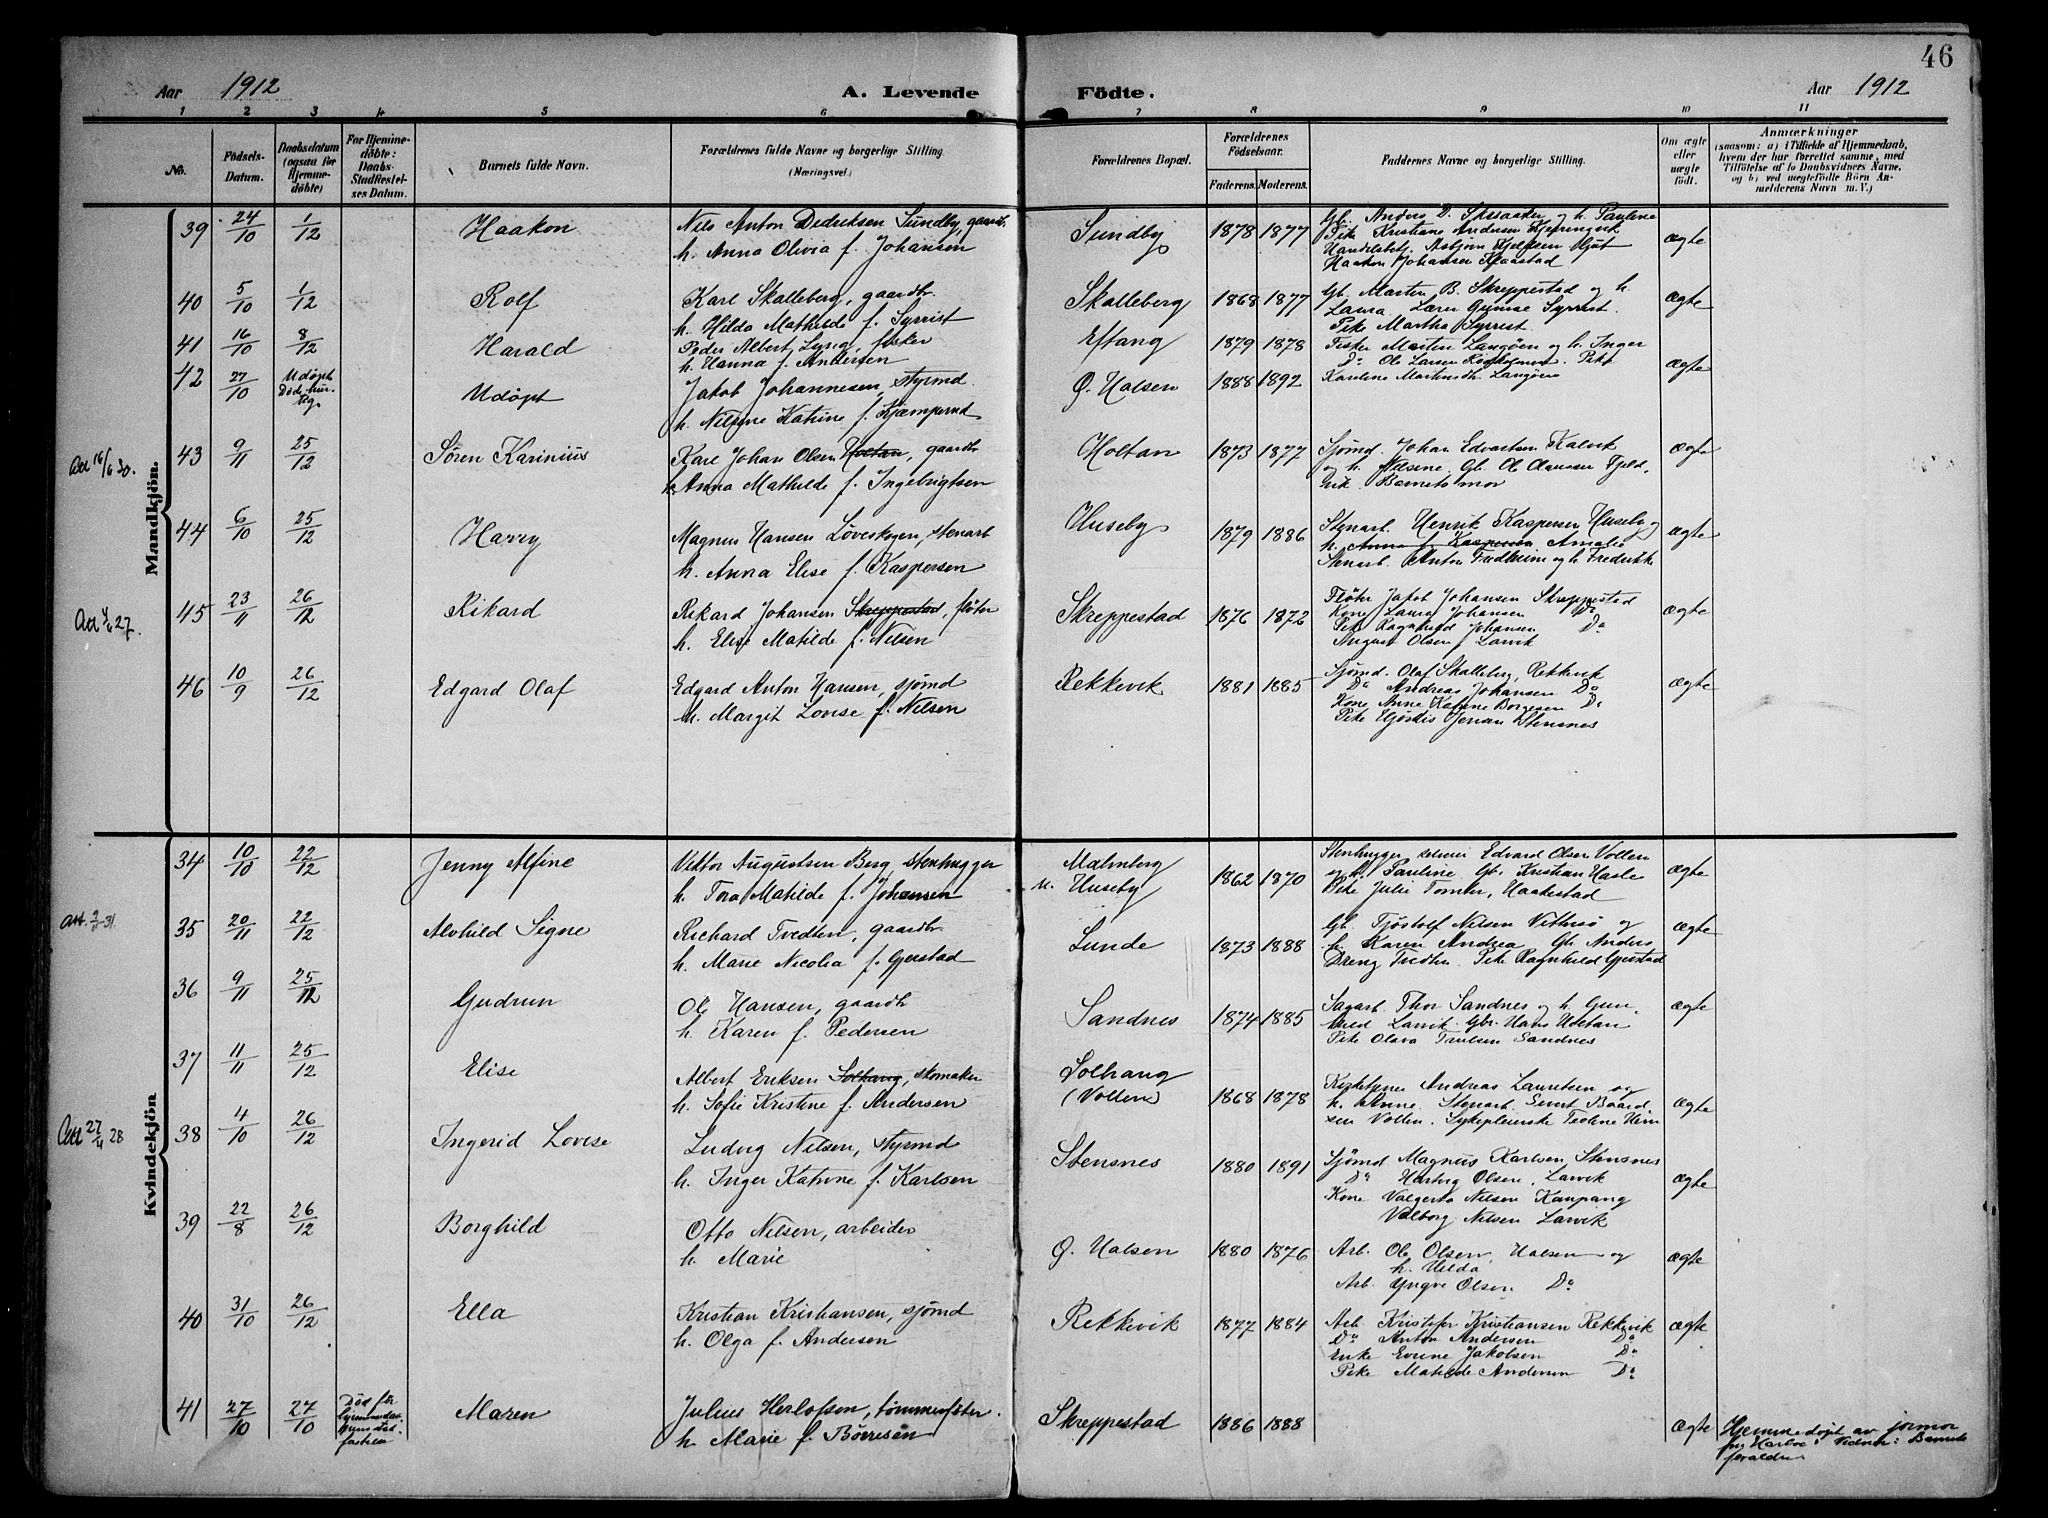 46
Aar 1912 A. Levende Födte. Aar 1912
1 2 3 4 5 6 7 8 9 10 11
No. Födsels-Datum. Daabsdatum (ogsaa for Hjemmedöbte) For Hjemmedöbte: Daabs-Stadfæstelses Datum. Barnets fulde Navn. Forældrenes fulde Navne og borgerlige Stilling. (Næringsvei.) Forældrenes Bopæl. Forældrenes Födselsaar. Faderens. Moderens. Faddernes Navne og borgerlige Stilling. Om ægte eller uægte födt. Anmærkninger (saasom: a) i Tilfælde af Hjemmedaab, hvem der har forrettet samme, med Tilföielse af to Daabsvidners Navne, og b) ved uægtefödte Börn Anmelderens Navn m. V.)
Mandkjön.
39 24/10 1/12 Haakon Nils Anton Didriksen Sundby, gaardb. Sundby 1878 1877 Gb. Anders D. og h. Pauline ægte
h. Anna Olivia f. Johansen Pike Kristiane Andersen
Handelsbetj. Asbjørn
Haakon Johansen Kaastad
40 5/10 1/12 Rolf Karl Skalleberg, gaardbr. Skalleberg 1868 1877 Gb. Marten B. Skreppestad og h. ægte
h. Hilda Mathilde f. Syrrist Laura Lærer Syrrist.
Pike Martha Syrrist.
41 16/10 8/12 Harald Peder Albert Lyng, fisker Eftang 1879 1878 Fisker Martin Langøen og h. Inger
h. Hanna f. Andersen Do Ole Larsen Pike
42 27/10 Udøpt Døde hurtig Udøpt Jakob Johannesen, styrmd. Ø. Halsen 1888 1892 Karoline Langøen ægte
h. Nilsine Katrine f. Kjæmperud
Att 16/6 30. 43 9/11 25/12 Søren Karinius Karl Johan Olsen Holtan, gaardbr Holtan 1873 1877 Sjømd. Johan Edvartsen Kalvik ægte
h. Anna Mathilde f. Ingebrigtsen og h. Nilsine. Gb. Ole Olaussen Fjeld,
Barnets mor
44 6/10 25/12 Harry Magnus Hansen Løveskogen, stenarb Huseby 1879 1886 Stenarb. Henrik Kaspersen Huseby og ægte
h. Anna Elise f. Kaspersen h. Anna f. Kaspersen Amalie
Stenarb. Anton Fredheim og h. Fredrikke
45 23/11 26/12 Rikard Rikard Johansen Skreppestad, fløter Skreppestad 1876 1872 Fløter Jakob Johansen Skreppestad ægte
h. Elise Matilde f. Nilsen Kone Laura Johansen Do
Pike Ragnhild Johansen Do
August Olsen Larvik
46 10/9 26/12 Edgard Olaf Edgard Anton Hansen, sjømd Rekkevik 1881 1885 Sjømd. Olaf Skalleberg, Rekkevik ægte
h. Margit Lovise f. Nilsen Do Andreas Johansen Do
Kone Anne Katrine Borgesen Do
Pike Hjørdis Stensnes
Kvindekjön
34 10/10 22/12 Jenny Alfine Viktor Augustsen Berg, stenhugger Malmberg u. Huseby 1862 1870 Stenhugger Edvard Olsen Vollen ægte
h. Tora Matilde f. Johansen og h. Pauline Gb. Kristian Hasle
Pike Julie Haakestad
35 20/11 22/12 Alvhild Signe Richard Tvedten, gaardbr. Lunde 1873 1888 Gb. Tjøstolf Nilsen og ægte
h. Marie Nicolia f. Gjerstad h. Karen Andrea Gb Anders
Dreng Tvedten. Pike Ragnhild Gjerstad
36 9/11 25/12 Gudrun Ole Hansen, gaardbr Sandnes 1874 1885 Sagarb. Thor Sandnes og h. Gunhild ægte
h. Karen f. Pedersen Larvik. Gbr. Hans
Pike Olava Sandnes
37 11/11 25/12 Elise Albert Eriksen Solhang, skomaker Solhang (Vollen) 1868 1878 Kirketjener Andreas Lauritsen og ægte
h. Sofie Kristine f. Andersen h. Anne. Stenarb. Baardsen Vollen. Sykepleierske
Att 27/4 28 38 4/10 26/12 Ingerid Lovise Ludvig Nilsen, styrmd Stensnes 1880 1891 Sjømd Magnus Karlsen Stensnes ægte
h. Inger Katrine f. Karlsen Do Hartvig Olsen, Larvik
Kone Valgerta Nilsen Kaupang
Valborg Nilsen Larvik
39 22/8 26/12 Borghild Otto Nilsen, arbeider Ø. Halsen 1880 1876 Arb. Ole Olsen, Halsen og ægte
h. Marie h. Hilda
Arb. Yngve Olsen Do
40 31/10 26/12 Ella Kristian Kristiansen, sjømd Rekkevik 1877 1884 Arb Kristofer Kristiansen Rekkevik ægte
h. Olga f. Andersen Do Anton Andersen Do
Enke Evine Jakobsen Do
Pike Matilde Andersen Do
41 27/10 27/10 Død før Maren Julius Herlofsen, tømmerfløter. Skreppestad 1886 1888 ægte Hjemmedøpt av jormor
h. Marie f. Børresen